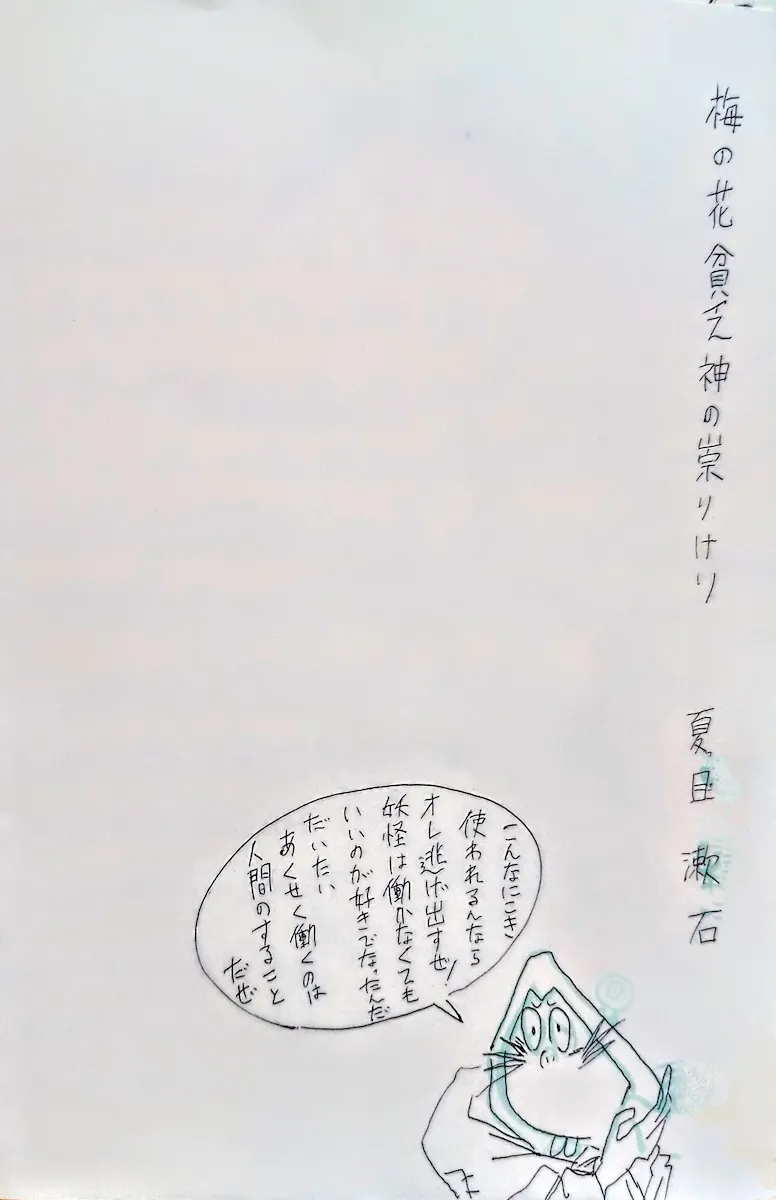 梅の花貧乏神の祟りけり
夏目 漱石
こんなにこき
使われるんなら
オレ逃げ出すぜ!
妖怪は働かなくても
いいのが好きでなったんだ
だいたい
あくせく働くのは
人間のすること
だぜ